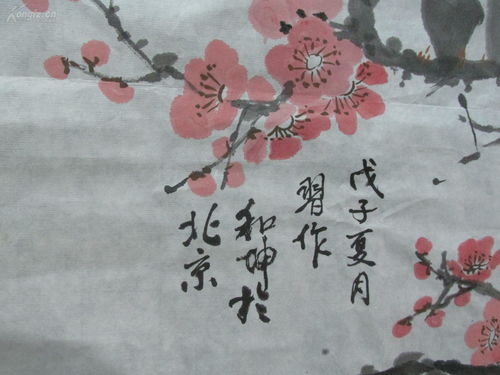 戊子夏月
習作
和坤於
北京
Kongfz.cn